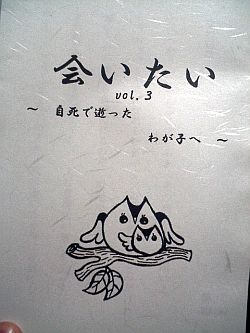 会いたい
vol.3
～ 自死で逝った
わが子へ ～